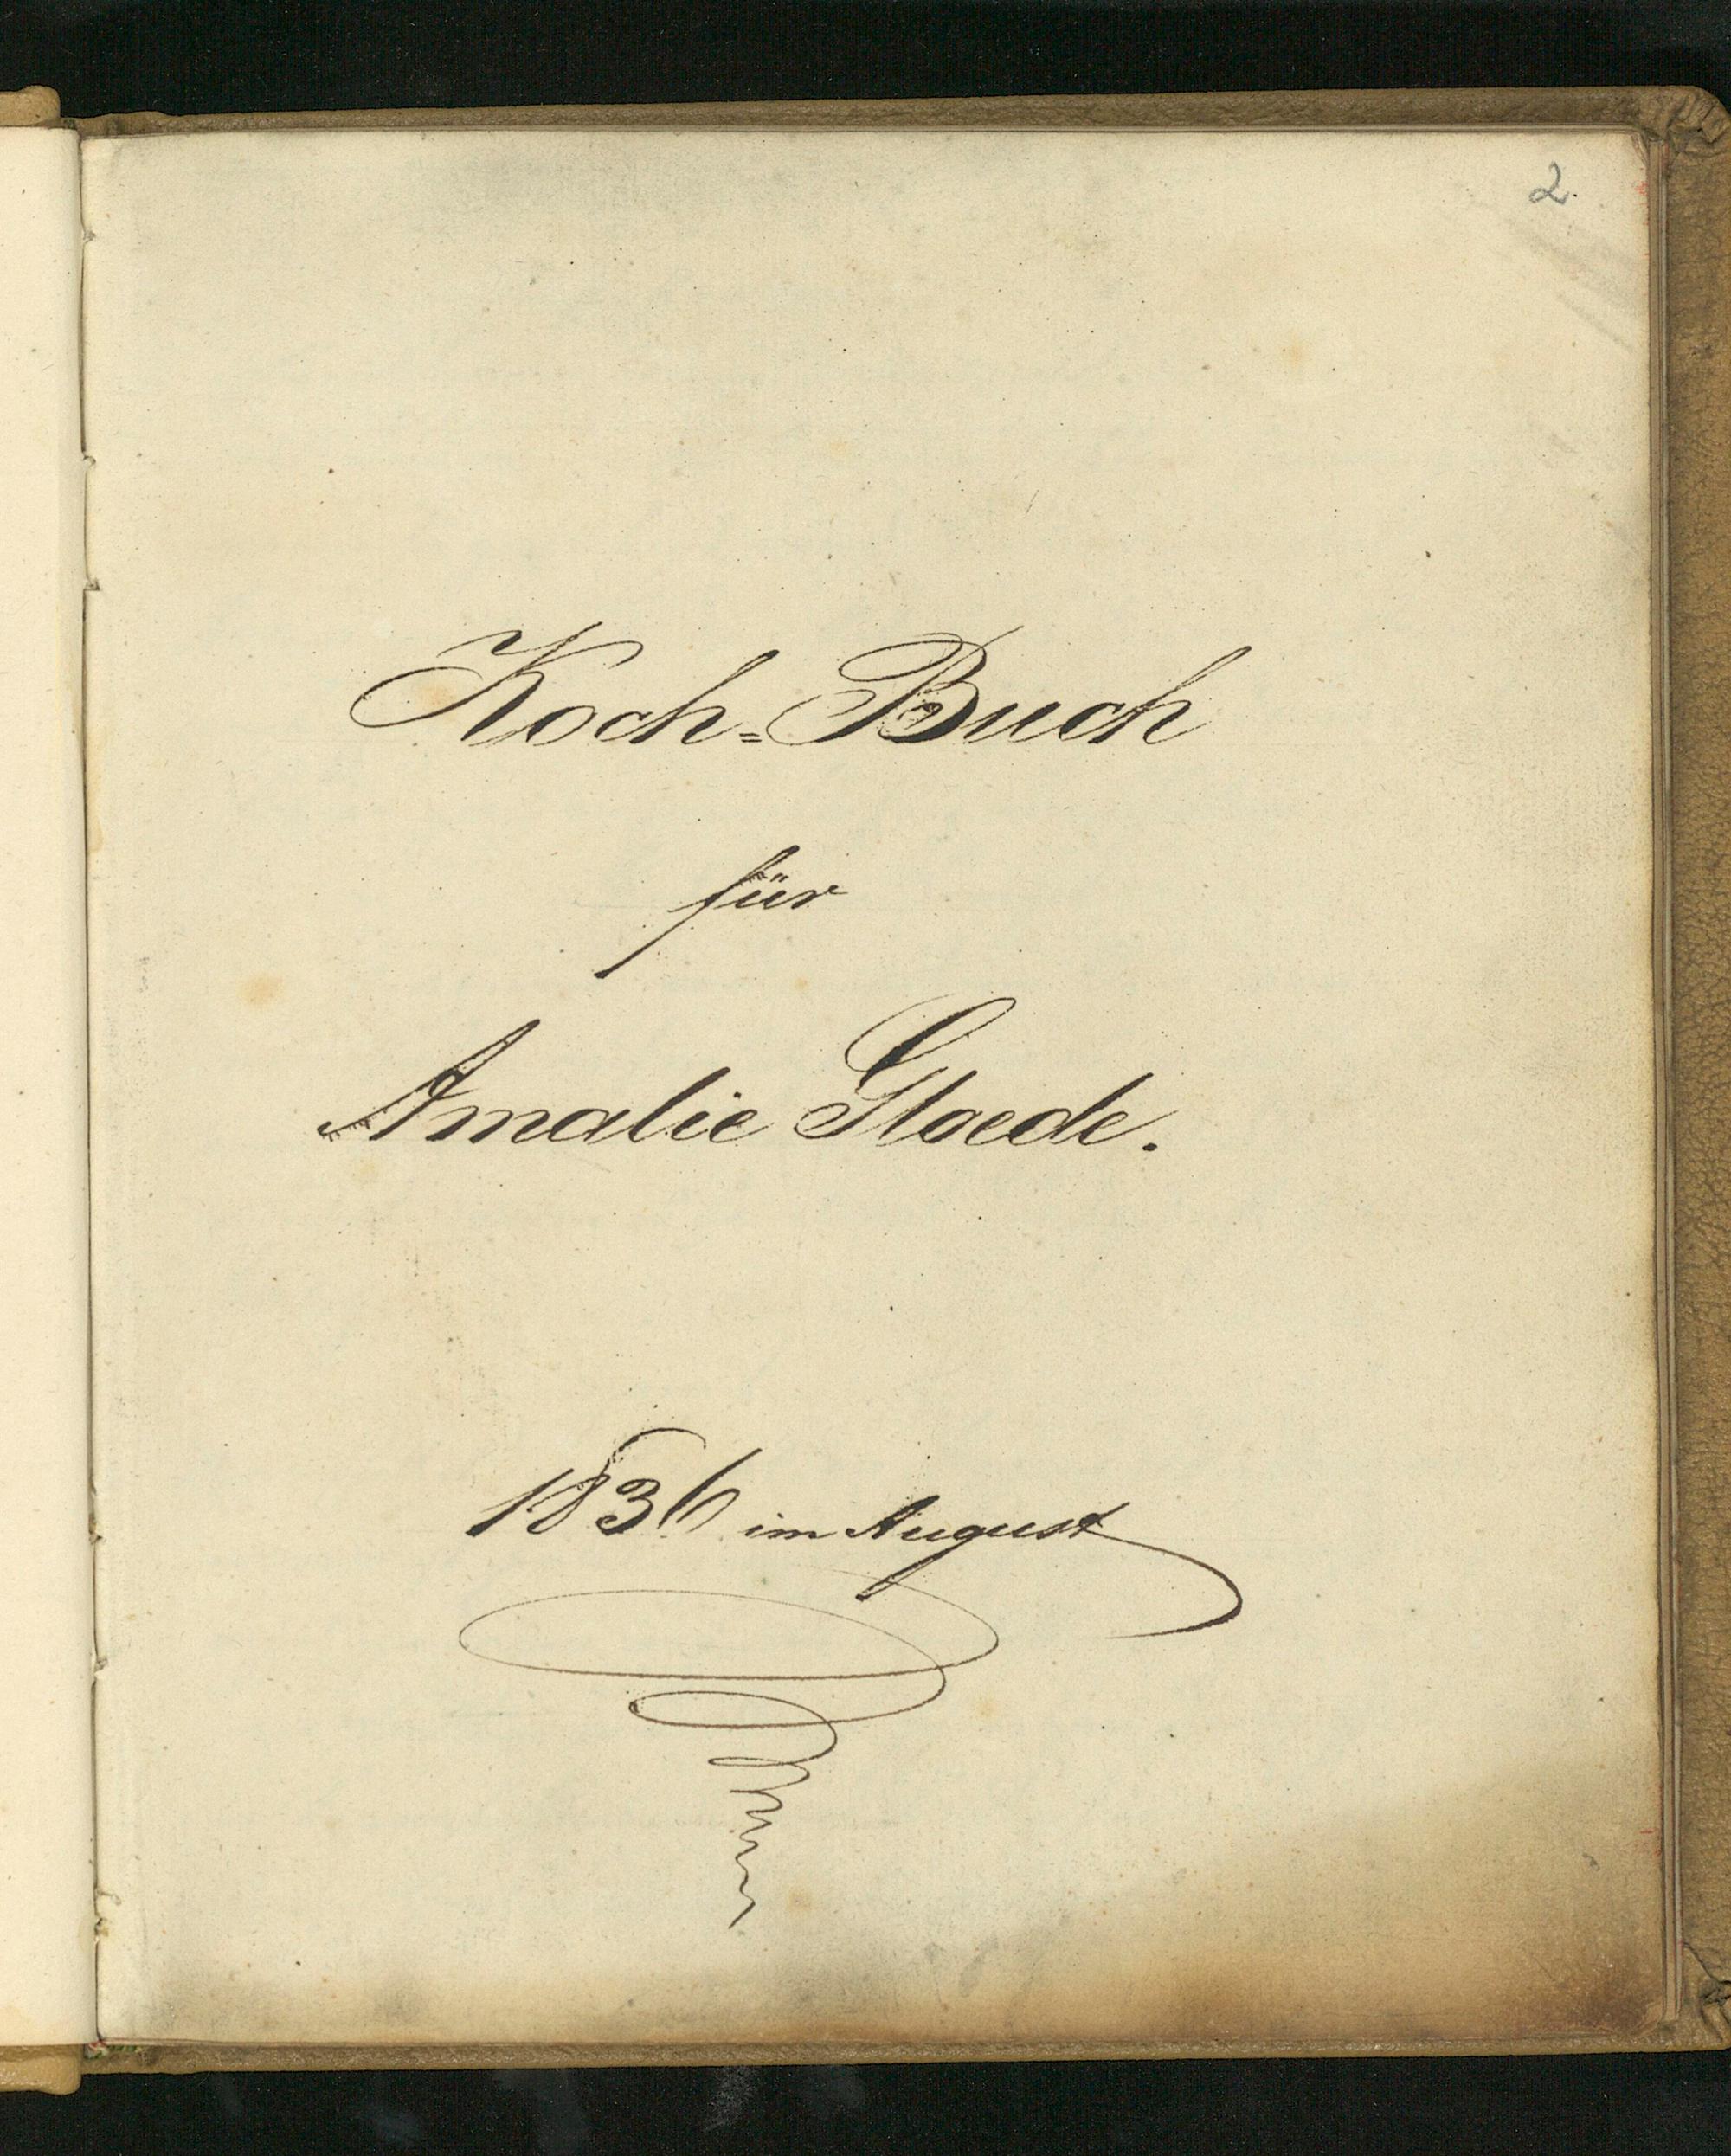 2.
Koch=Buch
für
Amalie Gloede.
1836 im August